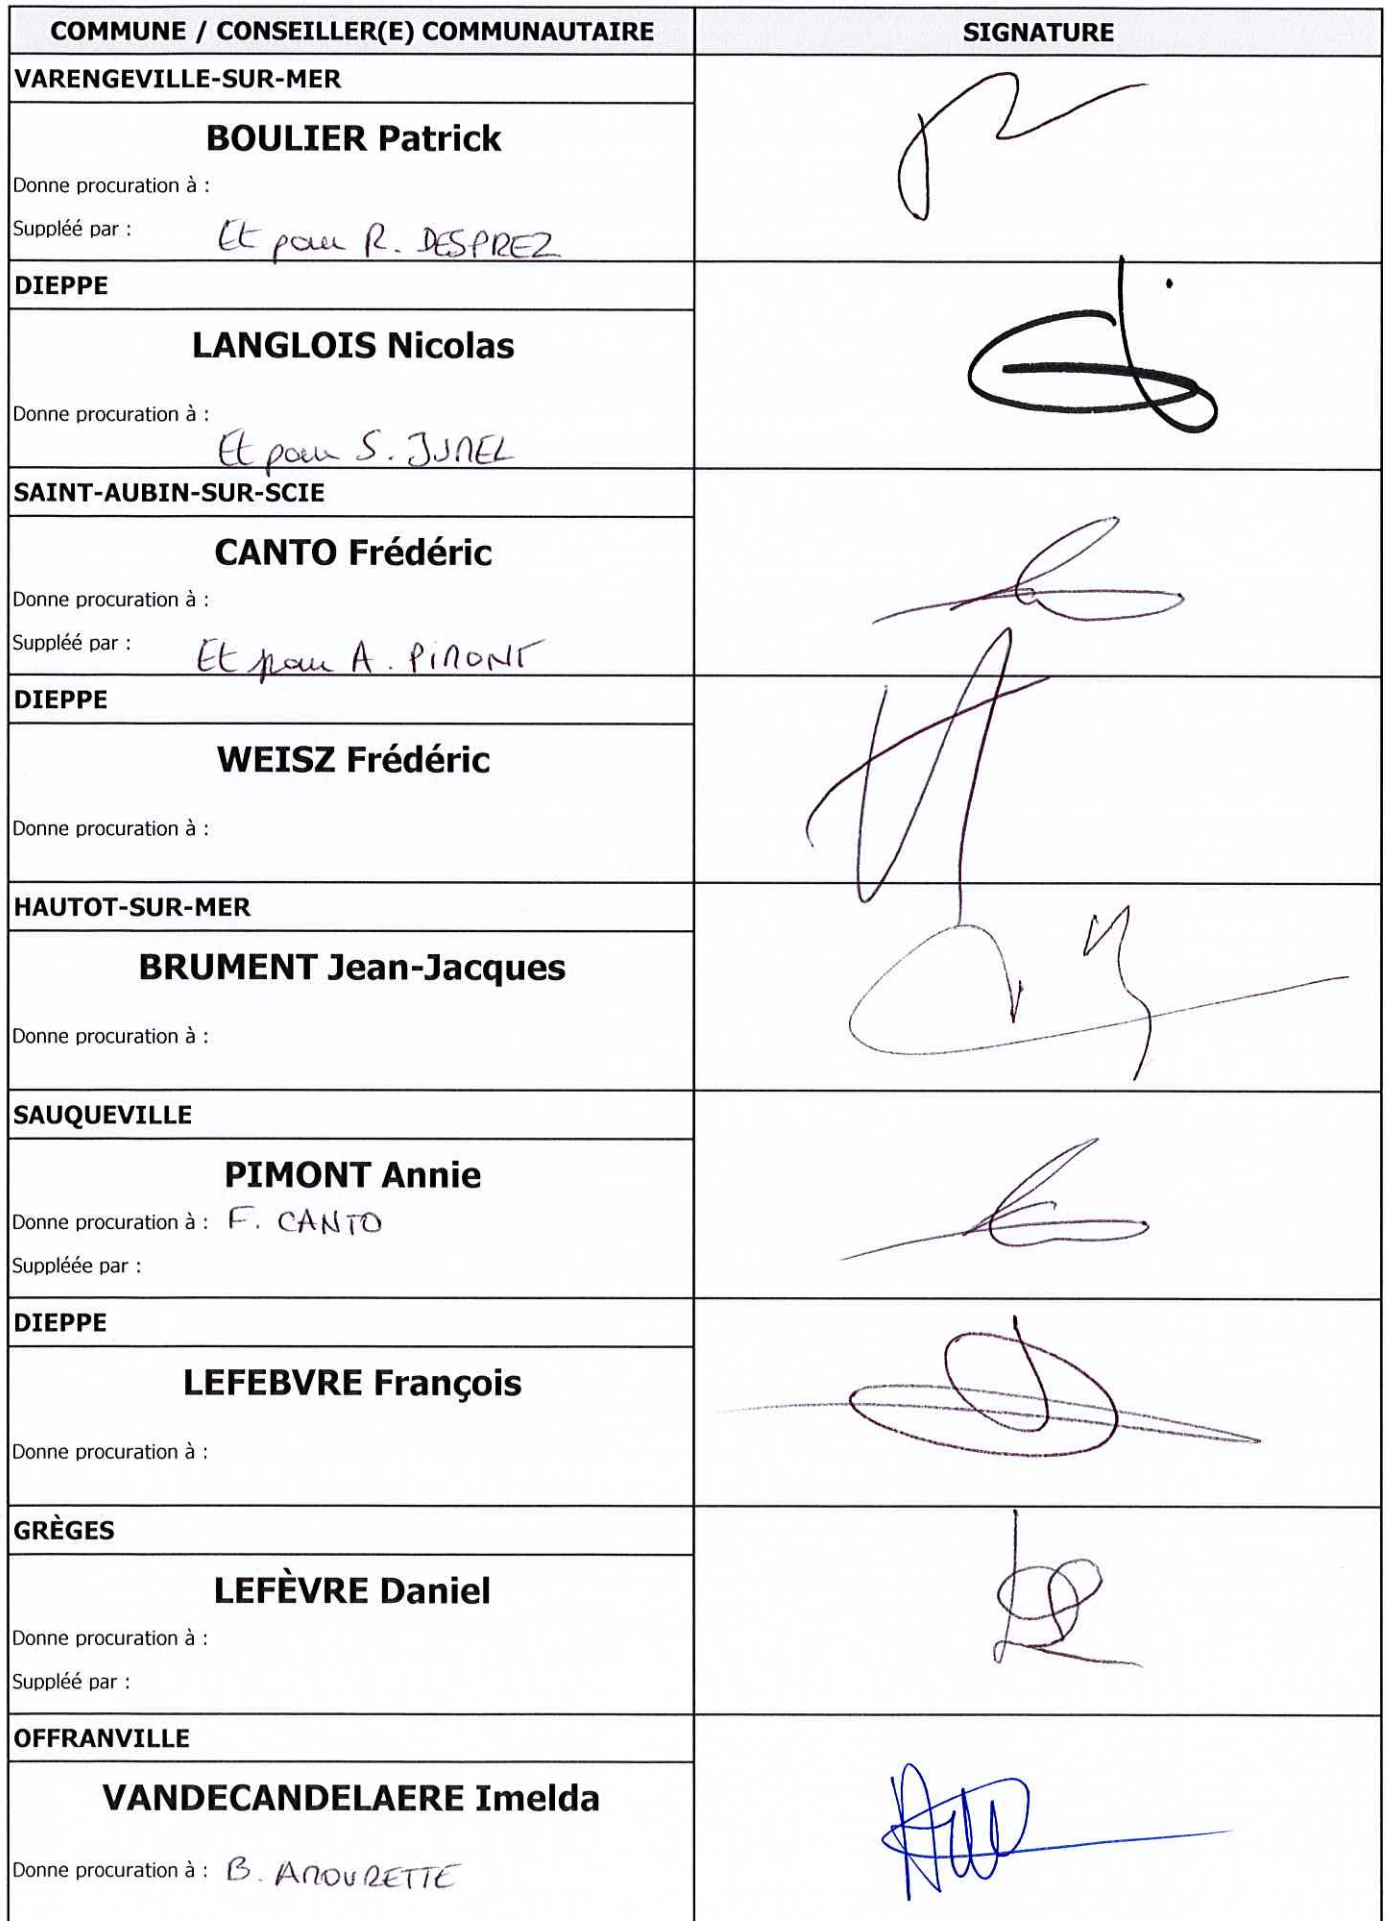 COMMUNE / CONSEILLER(E) COMMUNAUTAIRE SIGNATURE
VARENGEVILLE-SUR-MER
BOULIER Patrick
Donne procuration à :
Suppléé par : Et pour R. DESPREZ
DIEPPE
LANGLOIS Nicolas
Donne procuration à :
Et pour S. JUMEL
SAINT-AUBIN-SUR-SCIE
CANTO Frédéric
Donne procuration à :
Suppléé par : Et pour A. PIMONT
DIEPPE
WEISZ Frédéric
Donne procuration à :
HAUTOT-SUR-MER
BRUMENT Jean-Jacques
Donne procuration à :
SAUQUEVILLE
PIMONT Annie
Donne procuration à : F. CANTO
Suppléée par :
DIEPPE
LEFEBVRE François
Donne procuration à :
GRÈGES
LEFÈVRE Daniel
Donne procuration à :
Suppléé par :
OFFRANVILLE
VANDECANDELAERE Imelda
Donne procuration à : B. AMOURETTE